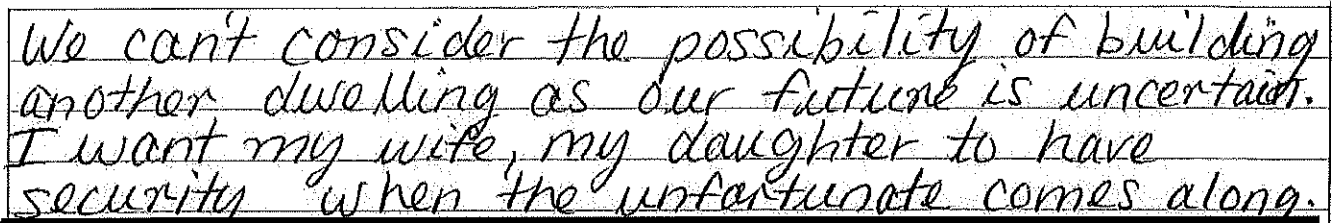 We can't consider the possibility of building
another dwelling as our future is uncertain.
I want my wife, my daughter to have
security when the unfortunate comes along.